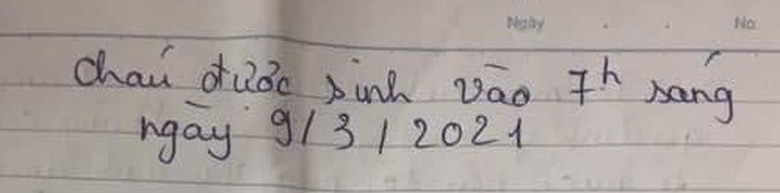 Ngày . . No
cháu được sinh vào 7h sáng
ngày 9/3/2021